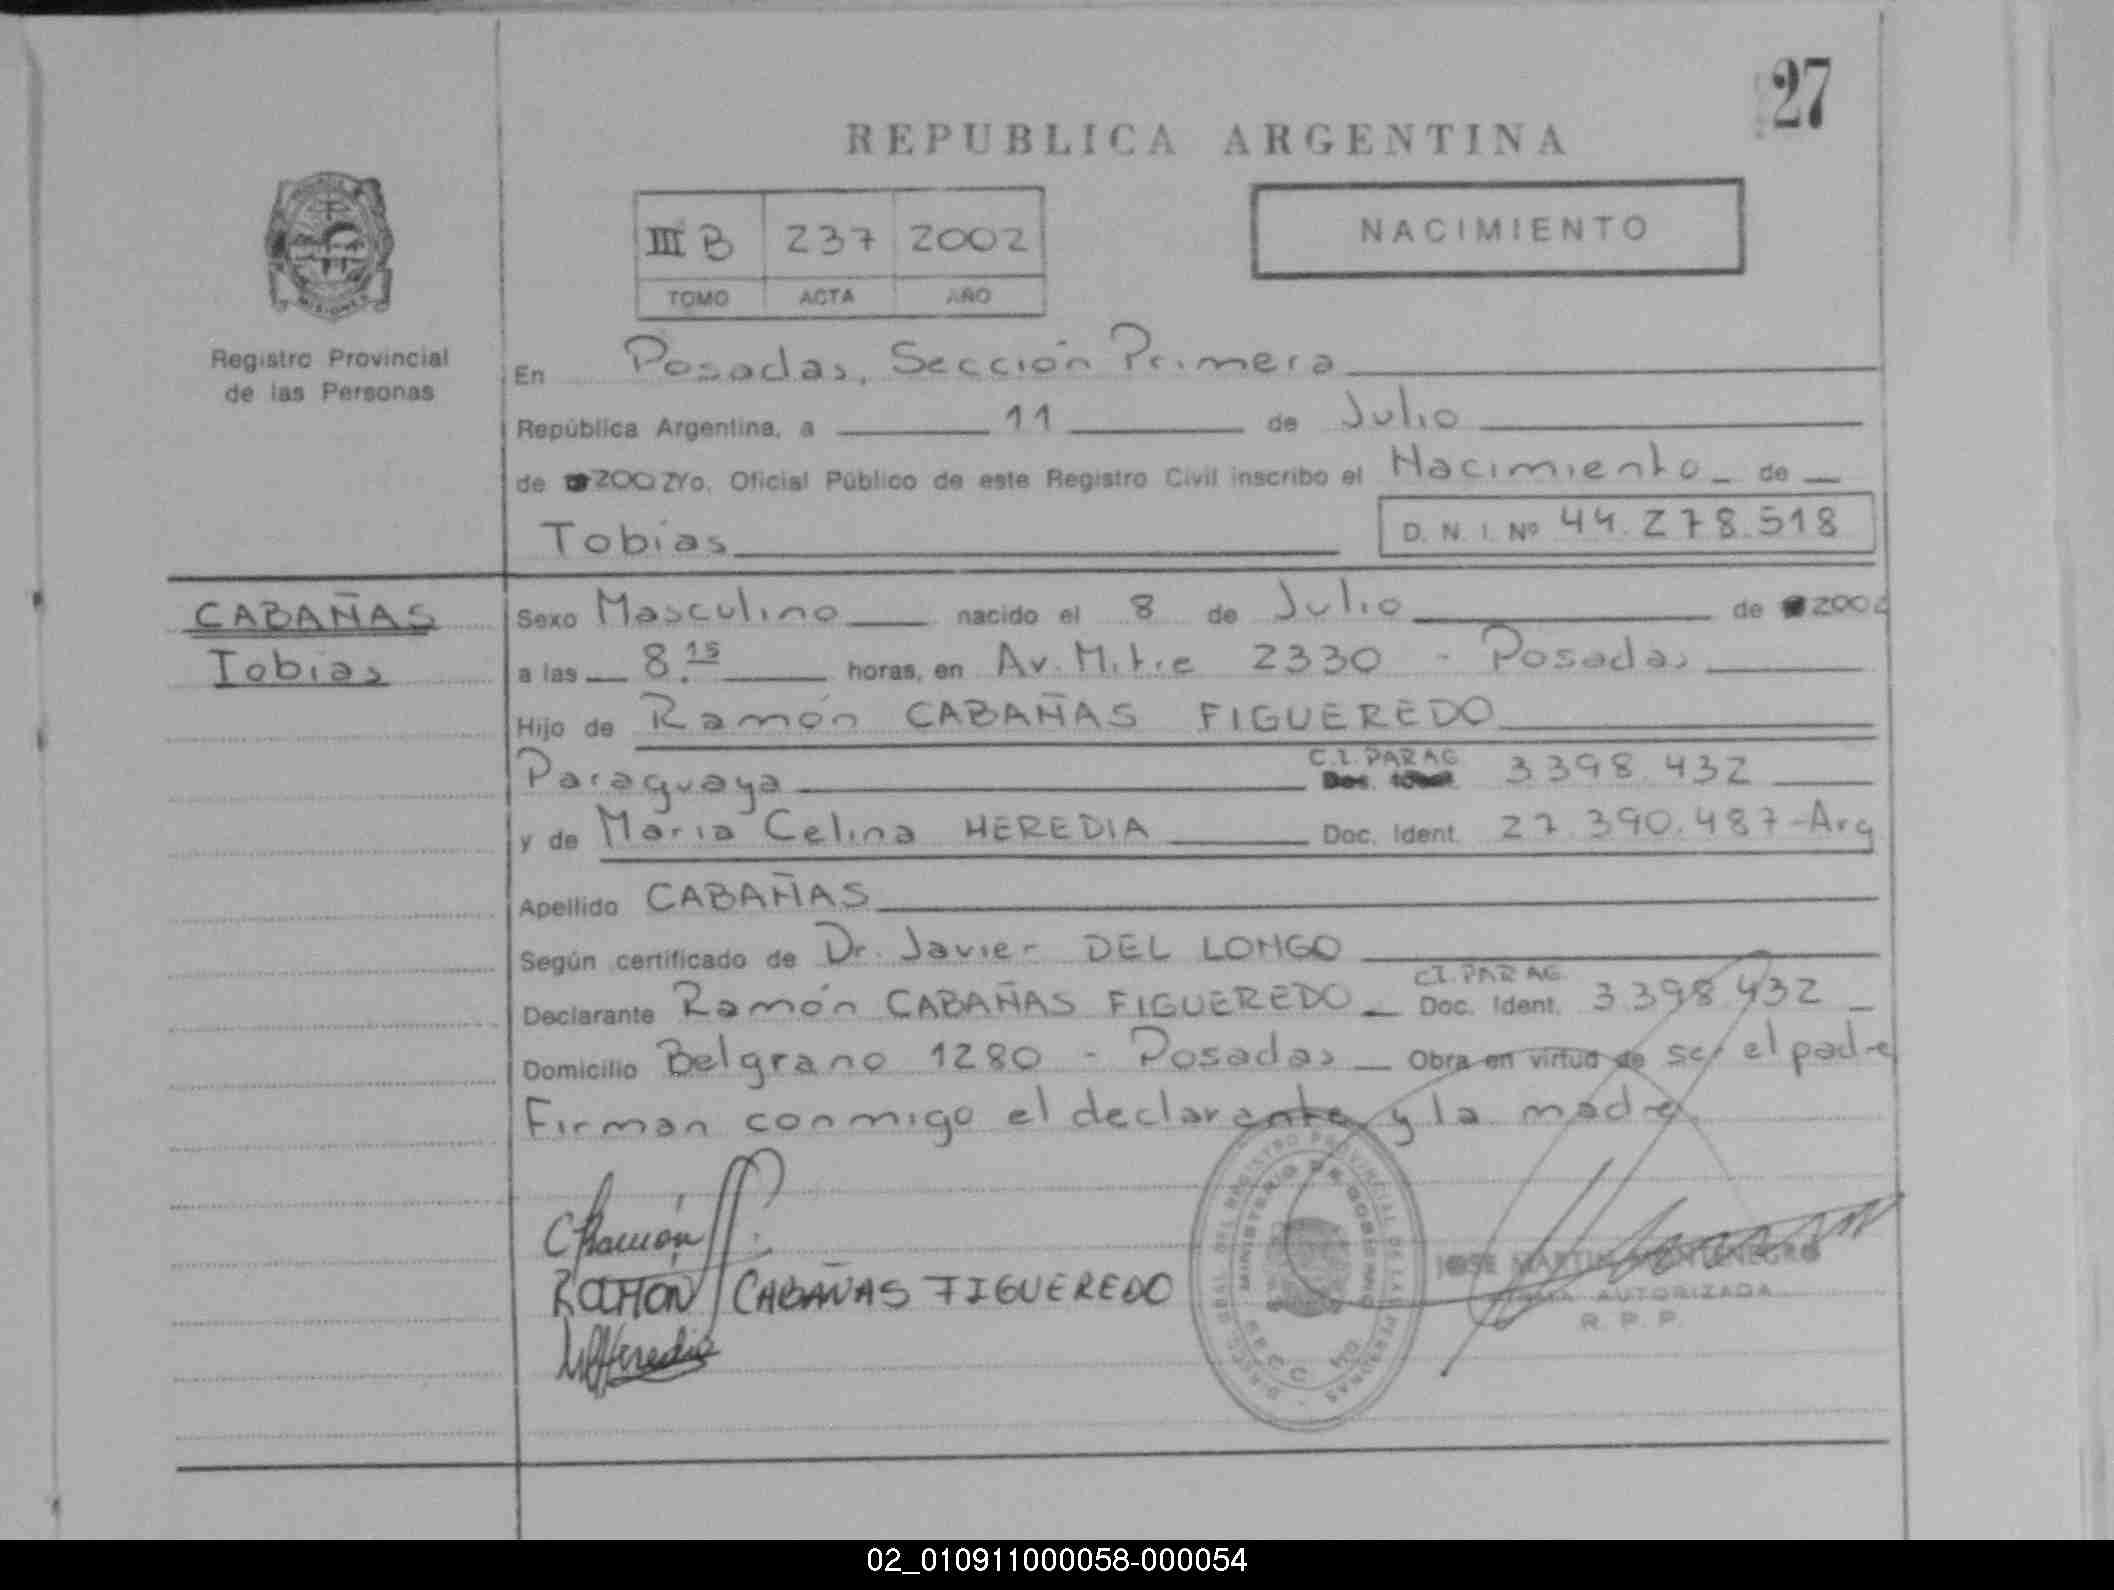 27
REPUBLICA ARGENTINA
III B 237 2002
TOMO ACTA AÑO
NACIMIENTO
MISIONES
Registro Provincial
de las Personas
En Posadas, Sección Primera
República Argentina, a 11 de Julio
de 2002 Yo, Oficial Público de este Registro Civil inscribo el Nacimiento de
Tobias D. N. I. Nº 44.278.518
CABAÑAS
Tobias
Sexo Masculino nacido el 8 de Julio de 2002
a las 8.15 horas, en Av. Mitre 2330 - Posadas
Hijo de Ramón CABAÑAS FIGUEREDO
Paraguaya C.I. PARAG 3398.432
y de Maria Celina HEREDIA Doc. Ident. 27.390.487-Arg
Apellido CABAÑAS
Según certificado de Dr. Javier DEL LONGO
Declarante Ramón CABAÑAS FIGUEREDO C.I. PARAG Doc. Ident. 3398.432
Domicilio Belgrano 1280 - Posadas Obra en virtud de ser el padre
Firman conmigo el declarante y la madre
CRamón
RAMÓN CABAÑAS FIGUEREDO
Heredia
DEL REGISTRO PROVINCIAL DE LAS PERSONAS
MINISTERIO DE GOBIERNO
JOSE MARTIN MONTENEGRO
FIRMA AUTORIZADA
R. P. P.
02_010911000058-000054